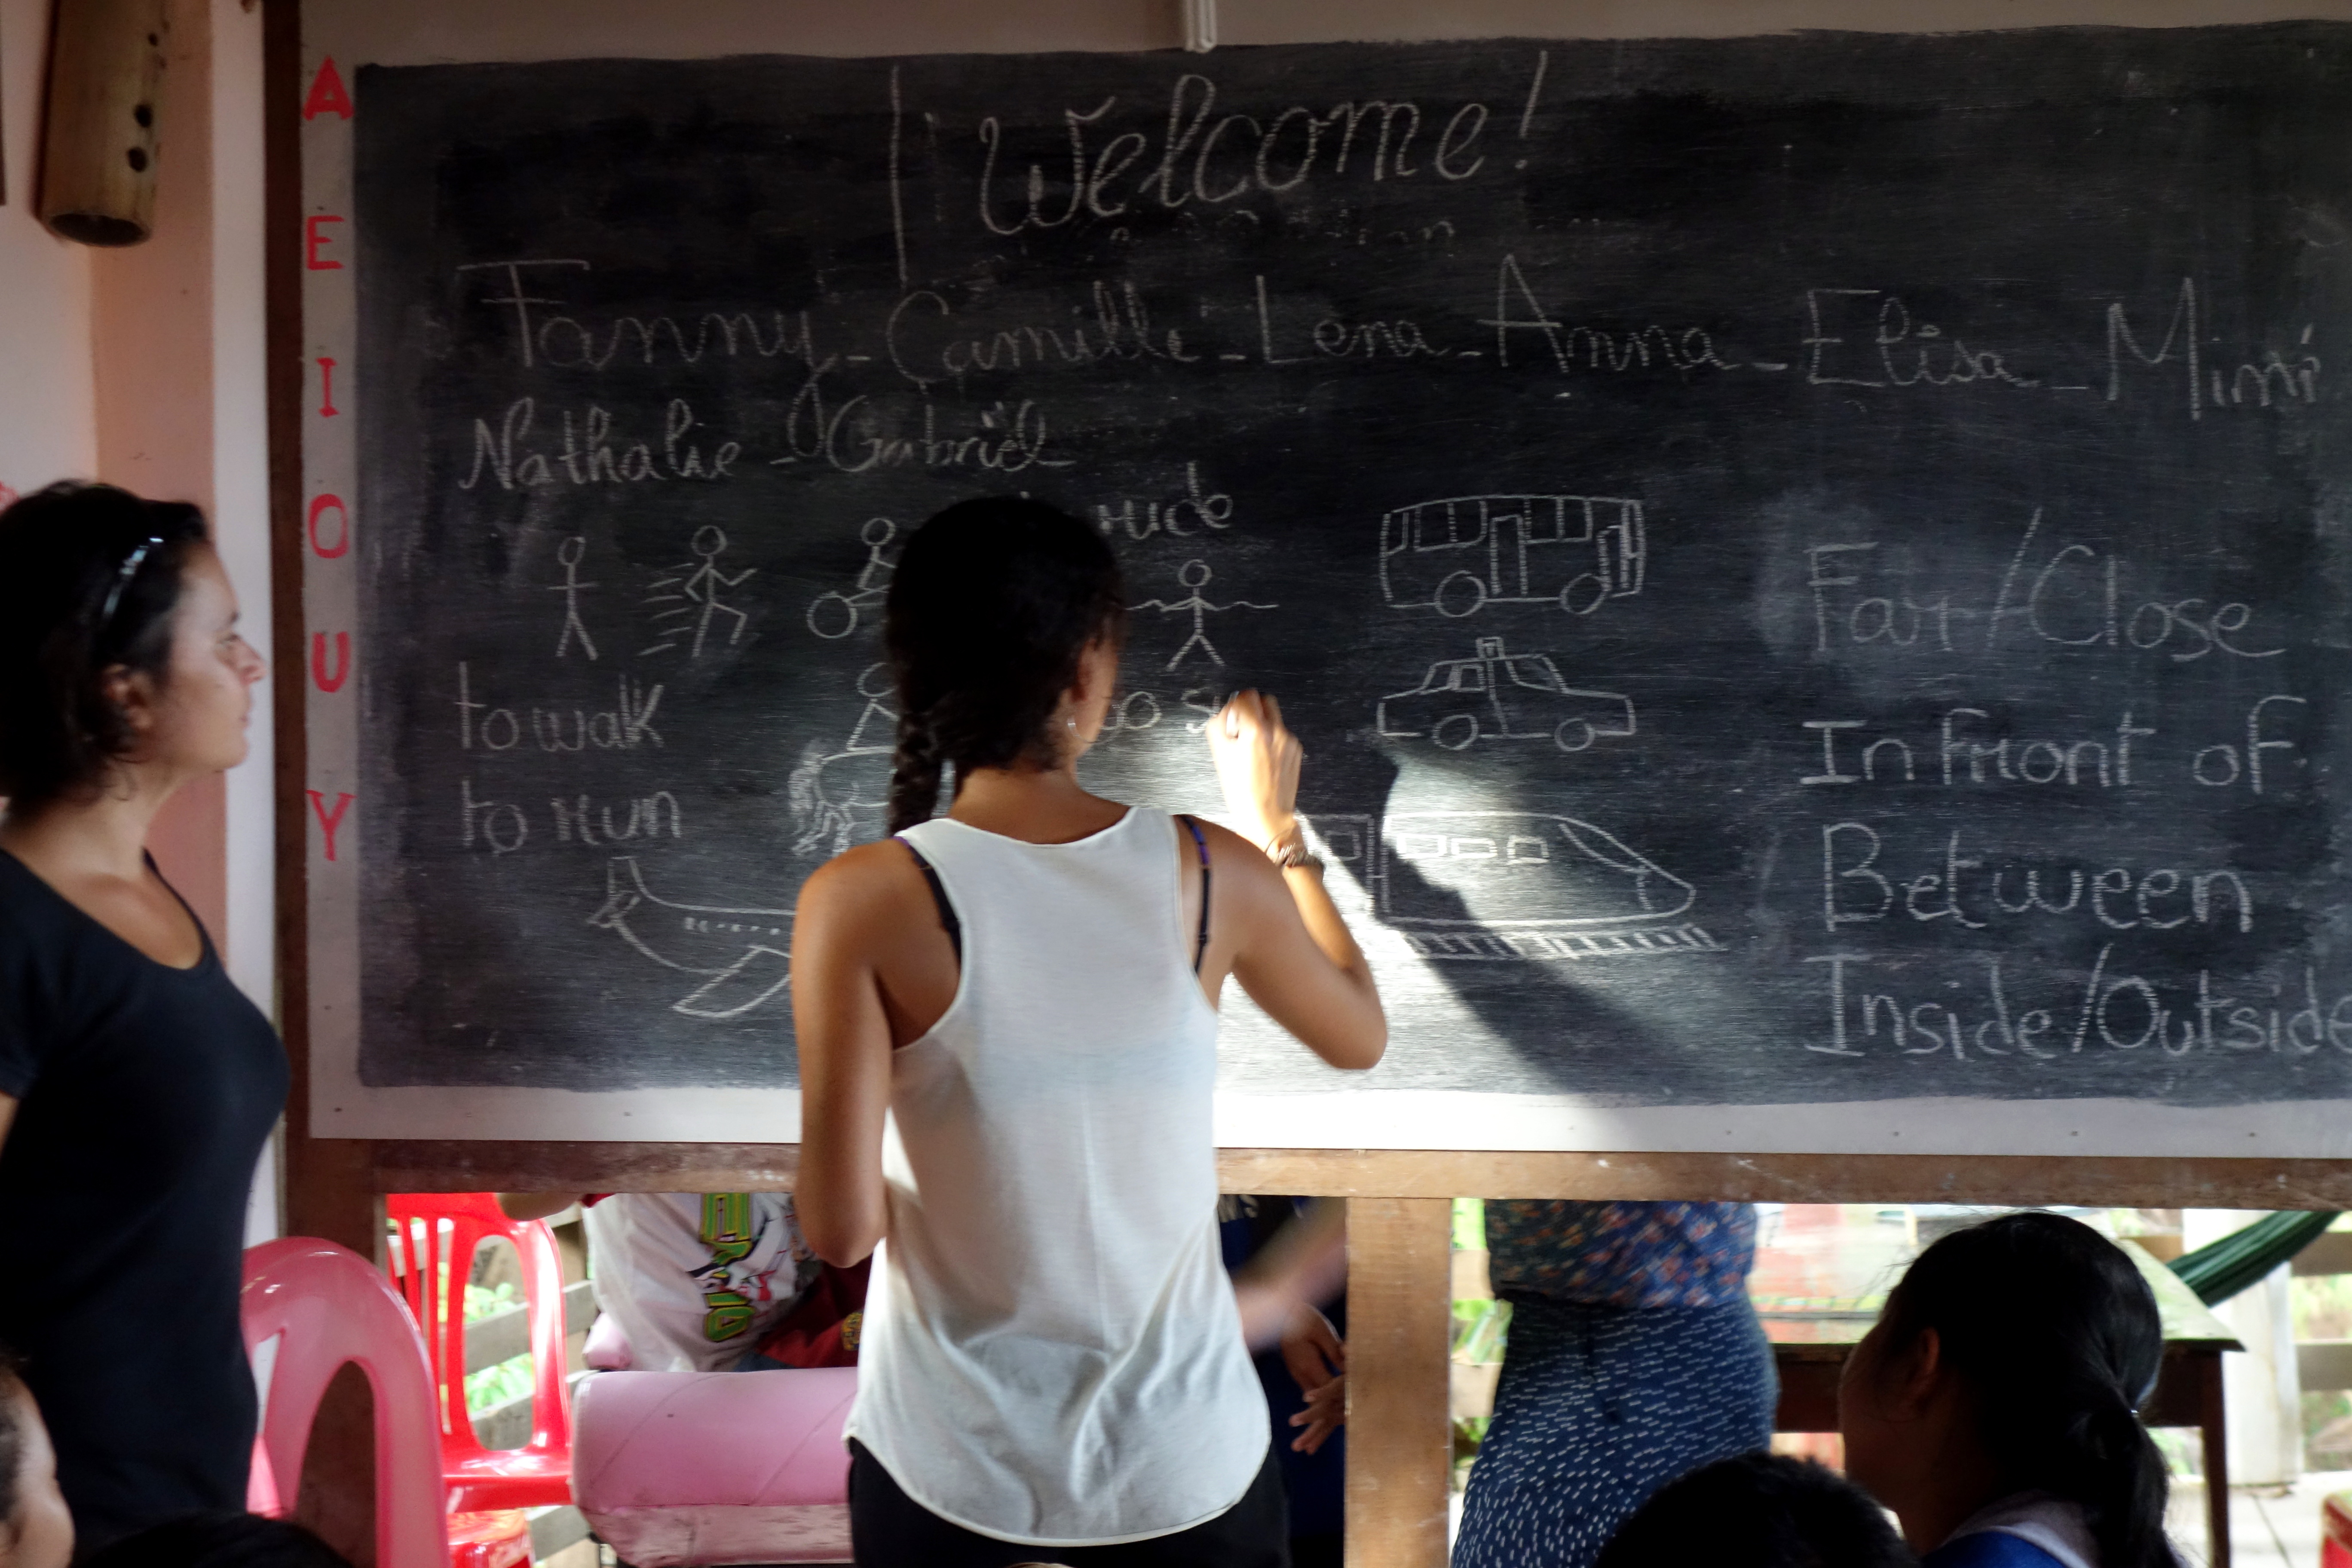 A
E
I
O
U
Y
Welcome!
Fanny - Camille - Lena - Anna - Elisa - Mimi
Nathalie - Gabriël
to walk
to run
Far/Close
In front of
Between
Inside/Outside